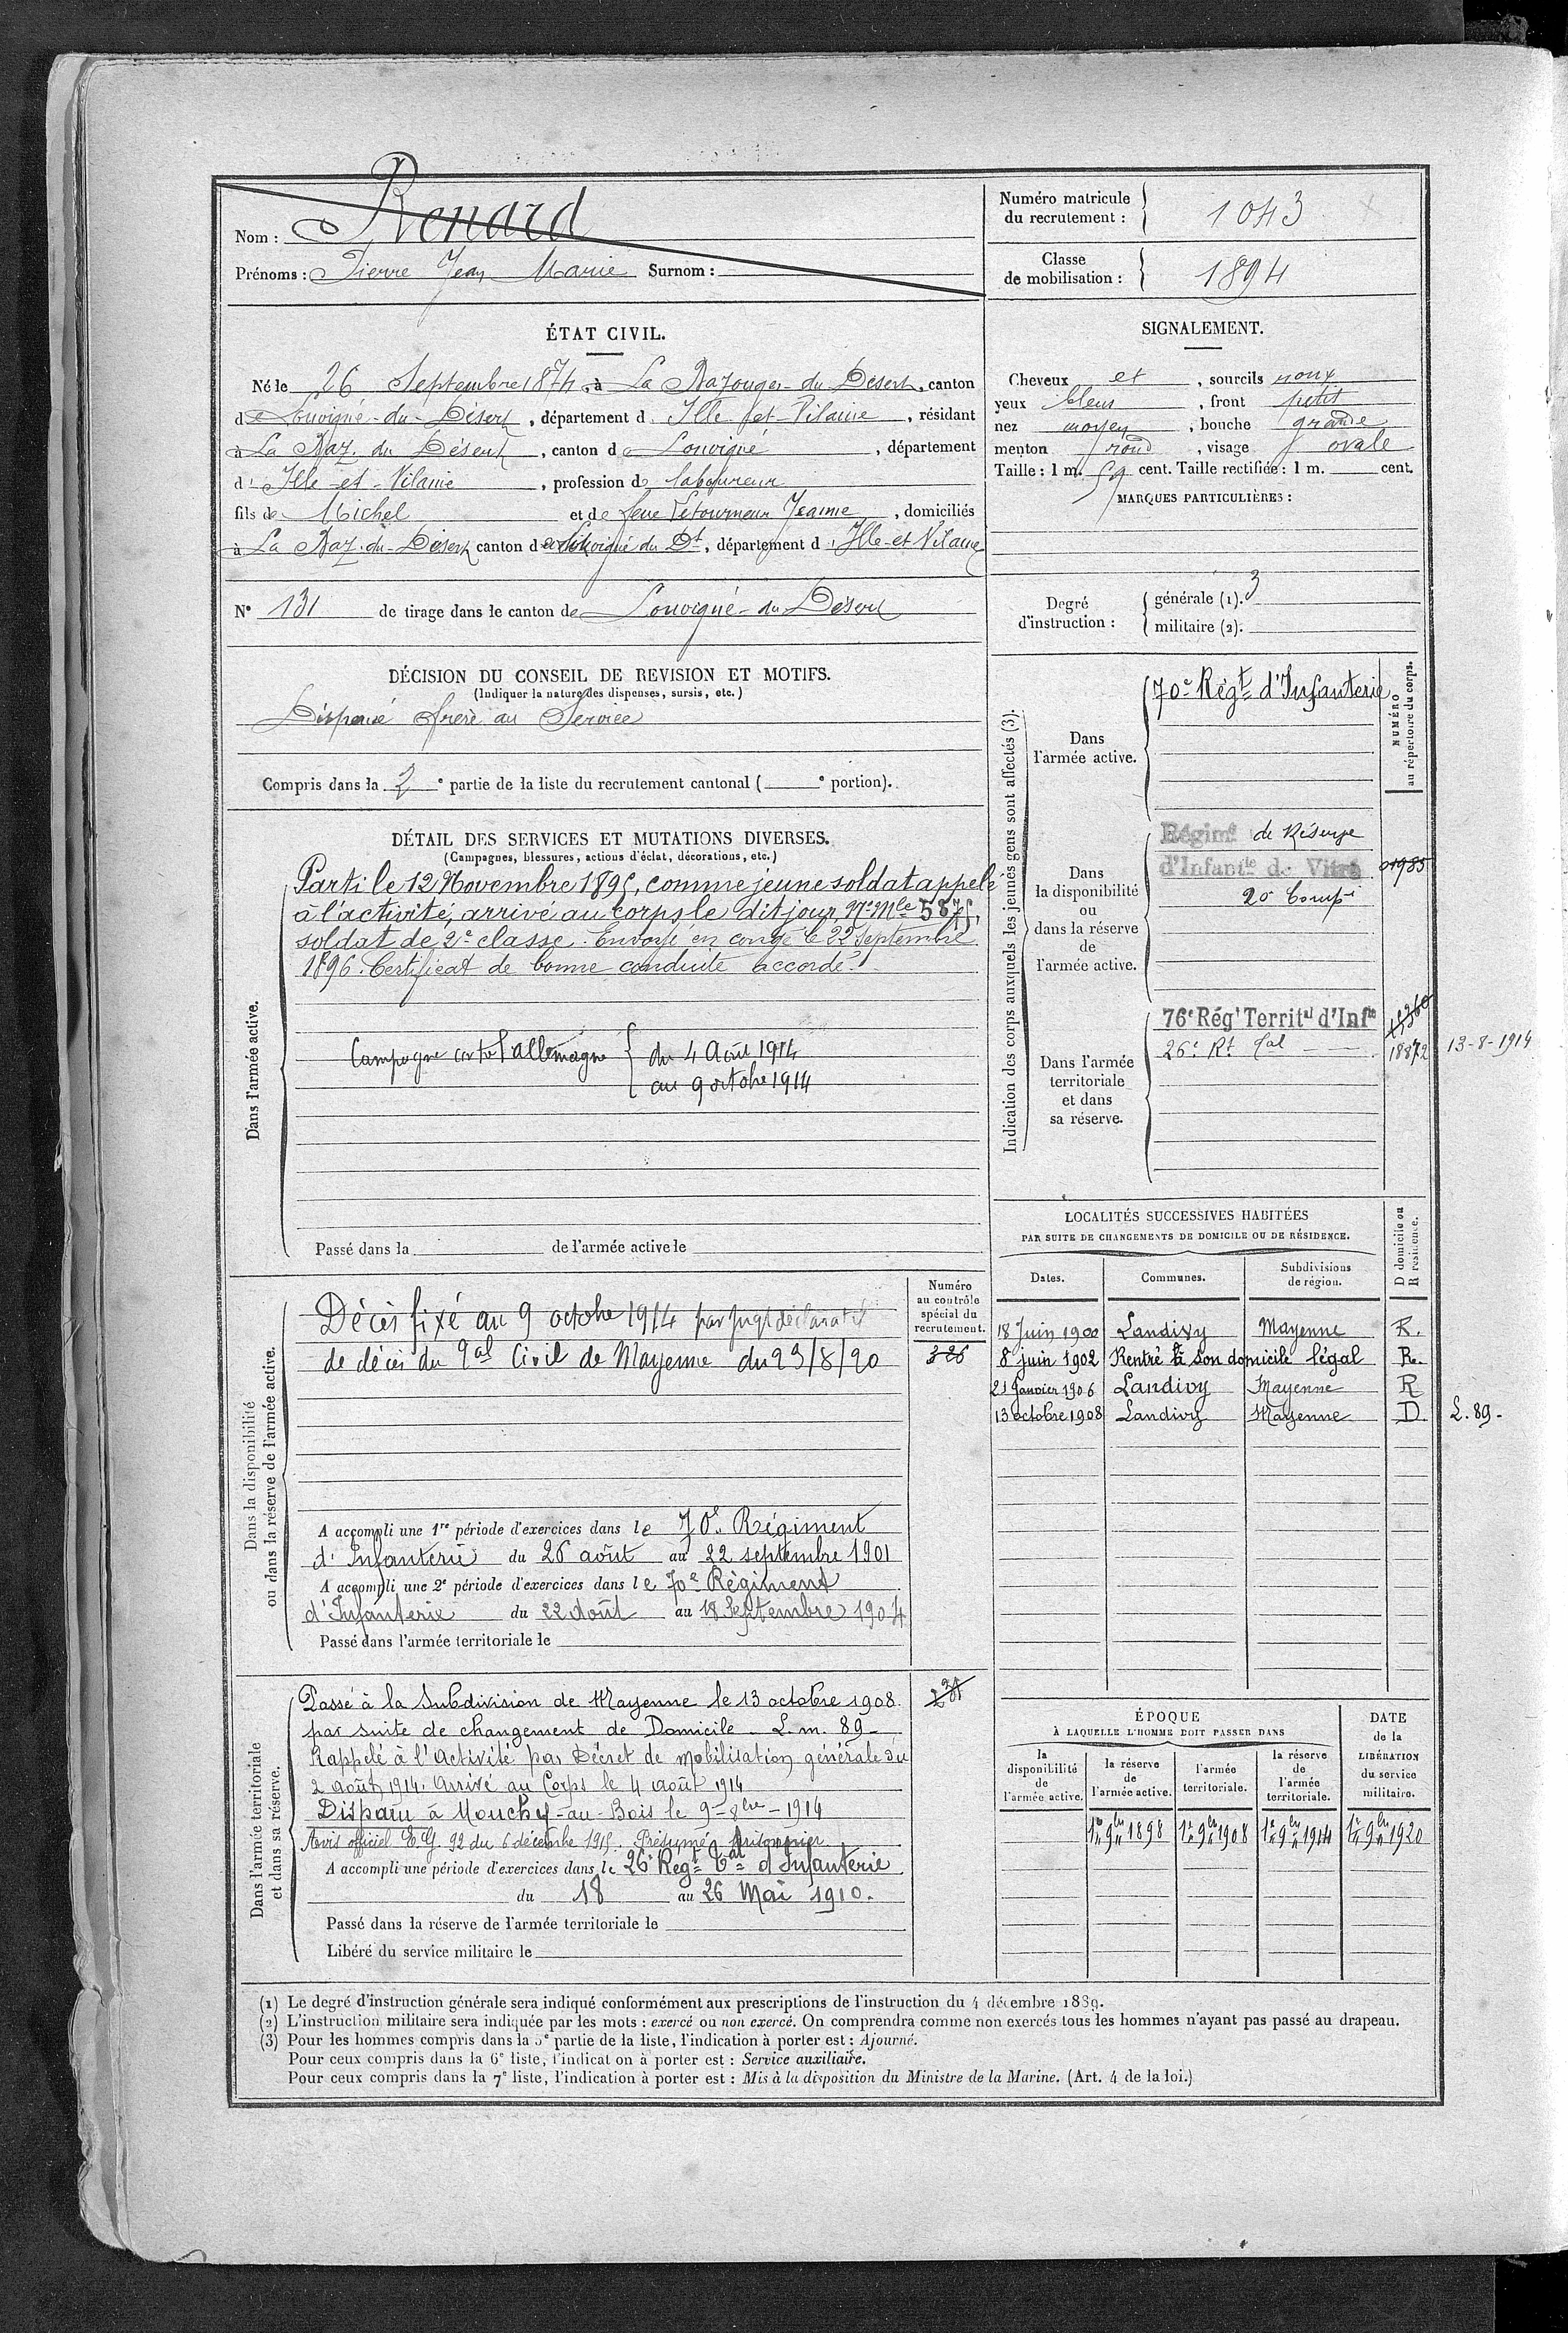 Nom : Renard
Prénoms : Pierre Jean Marie Surnom :
Numéro matricule du recrutement : 1043
Classe de mobilisation : 1894
ÉTAT CIVIL.
Né le 26 Septembre 1874, à La Bazouges-du-Désert, canton
de Louvigné-du-Désert, département d'Ille-et-Vilaine, résidant
à La Baz. du Désert, canton de Louvigné, département
d'Ille-et-Vilaine, profession de laboureur
fils de Michel et de feue Letourneur Jeanne, domiciliés
à La Baz.-du-Désert canton de Louvigné du Dt, département d'Ille-et-Vilaine
N° 131 de tirage dans le canton de Louvigné-du-Désert
SIGNALEMENT.
Cheveux et, sourcils roux
yeux bleus, front petit
nez moyen, bouche grande
menton rond, visage ovale
Taille : 1 m. 59 cent. Taille rectifiée : 1 m. cent.
MARQUES PARTICULIÈRES :
Degré d'instruction : générale (1). 3
militaire (2).
DÉCISION DU CONSEIL DE REVISION ET MOTIFS.
(Indiquer la nature des dispenses, sursis, etc.)
Dispensé frère au Service
Compris dans la 2e partie de la liste du recrutement cantonal ( e portion).
DÉTAIL DES SERVICES ET MUTATIONS DIVERSES.
(Campagnes, blessures, actions d'éclat, décorations, etc.)
Dans l'armée active.
Parti le 12 Novembre 1895, comme jeune soldat appelé
à l'activité, arrivé au corps le dit jour, N° Mle 5875,
soldat de 2e classe. Envoyé en congé le 22 Septembre
1896. Certificat de bonne conduite accordé.
Campagne cte l'allemagne { du 4 Août 1914
au 9 octobre 1914
Passé dans la de l'armée active le
Indication des corps auxquels les jeunes gens sont affectés (3).
NUMÉRO au répertoire du corps.
Dans l'armée active.
70e Régt d'Infanterie
Dans la disponibilité ou dans la réserve de l'armée active.
Régimt de Réserve
d'Infantie de Vitré 01985
20e Compie
Dans l'armée territoriale et dans sa réserve.
76e Régt Territal d'Infie
26e Rt Tal 18872 13-8-1914
LOCALITÉS SUCCESSIVES HABITÉES
PAR SUITE DE CHANGEMENTS DE DOMICILE OU DE RÉSIDENCE.
Dates. Communes. Subdivisions de région. D domicile ou R résidence.
18 Juin 1900 Landivy Mayenne R.
8 juin 1902 Rentré à son domicile légal R.
21 Janvier 1906 Landivy Mayenne R
13 octobre 1908 Landivy Mayenne D. L. 89-
Dans la disponibilité ou dans la réserve de l'armée active.
Numéro au contrôle spécial du recrutement.
326
Décès fixé au 9 octobre 1914 par Jugt déclaratif
de décès du Tal Civil de Mayenne du 23/8/20
A accompli une 1re période d'exercices dans le 70e Régiment
d'Infanterie du 26 août au 22 septembre 1901
A accompli une 2e période d'exercices dans le 70e Régiment
d'Infanterie du 22 Août au 18 Septembre 1904
Passé dans l'armée territoriale le
Dans l'armée territoriale et dans sa réserve.
Passé à la Subdivision de Mayenne le 13 octobre 1908
par suite de changement de Domicile. L. m. 89-
Rappelé à l'Activité par Décret de mobilisation générale du
2 août 1914. Arrivé au Corps le 4 août 1914
Disparu à Monchy-au-Bois le 9-8bre-1914
Avis officiel E.G. 92 du 6 décembre 1915. Présumé prisonnier
A accompli une période d'exercices dans le 26e Regt Tal d'Infanterie
du 18 au 26 Mai 1910.
Passé dans la réserve de l'armée territoriale le
Libéré du service militaire le
ÉPOQUE
À LAQUELLE L'HOMME DOIT PASSER DANS
la disponibilité de l'armée active. la réserve de l'armée active. l'armée territoriale. la réserve de l'armée territoriale. DATE de la LIBÉRATION du service militaire.
1er 9bre 1898 1er 9bre 1908 1er 9bre 1914 1er 9bre 1920
(1) Le degré d'instruction générale sera indiqué conformément aux prescriptions de l'instruction du 4 décembre 1889.
(2) L'instruction militaire sera indiquée par les mots : exercé ou non exercé. On comprendra comme non exercés tous les hommes n'ayant pas passé au drapeau.
(3) Pour les hommes compris dans la 5e partie de la liste, l'indication à porter est : Ajourné.
Pour ceux compris dans la 6e liste, l'indication à porter est : Service auxiliaire.
Pour ceux compris dans la 7e liste, l'indication à porter est : Mis à la disposition du Ministre de la Marine. (Art. 4 de la loi.)